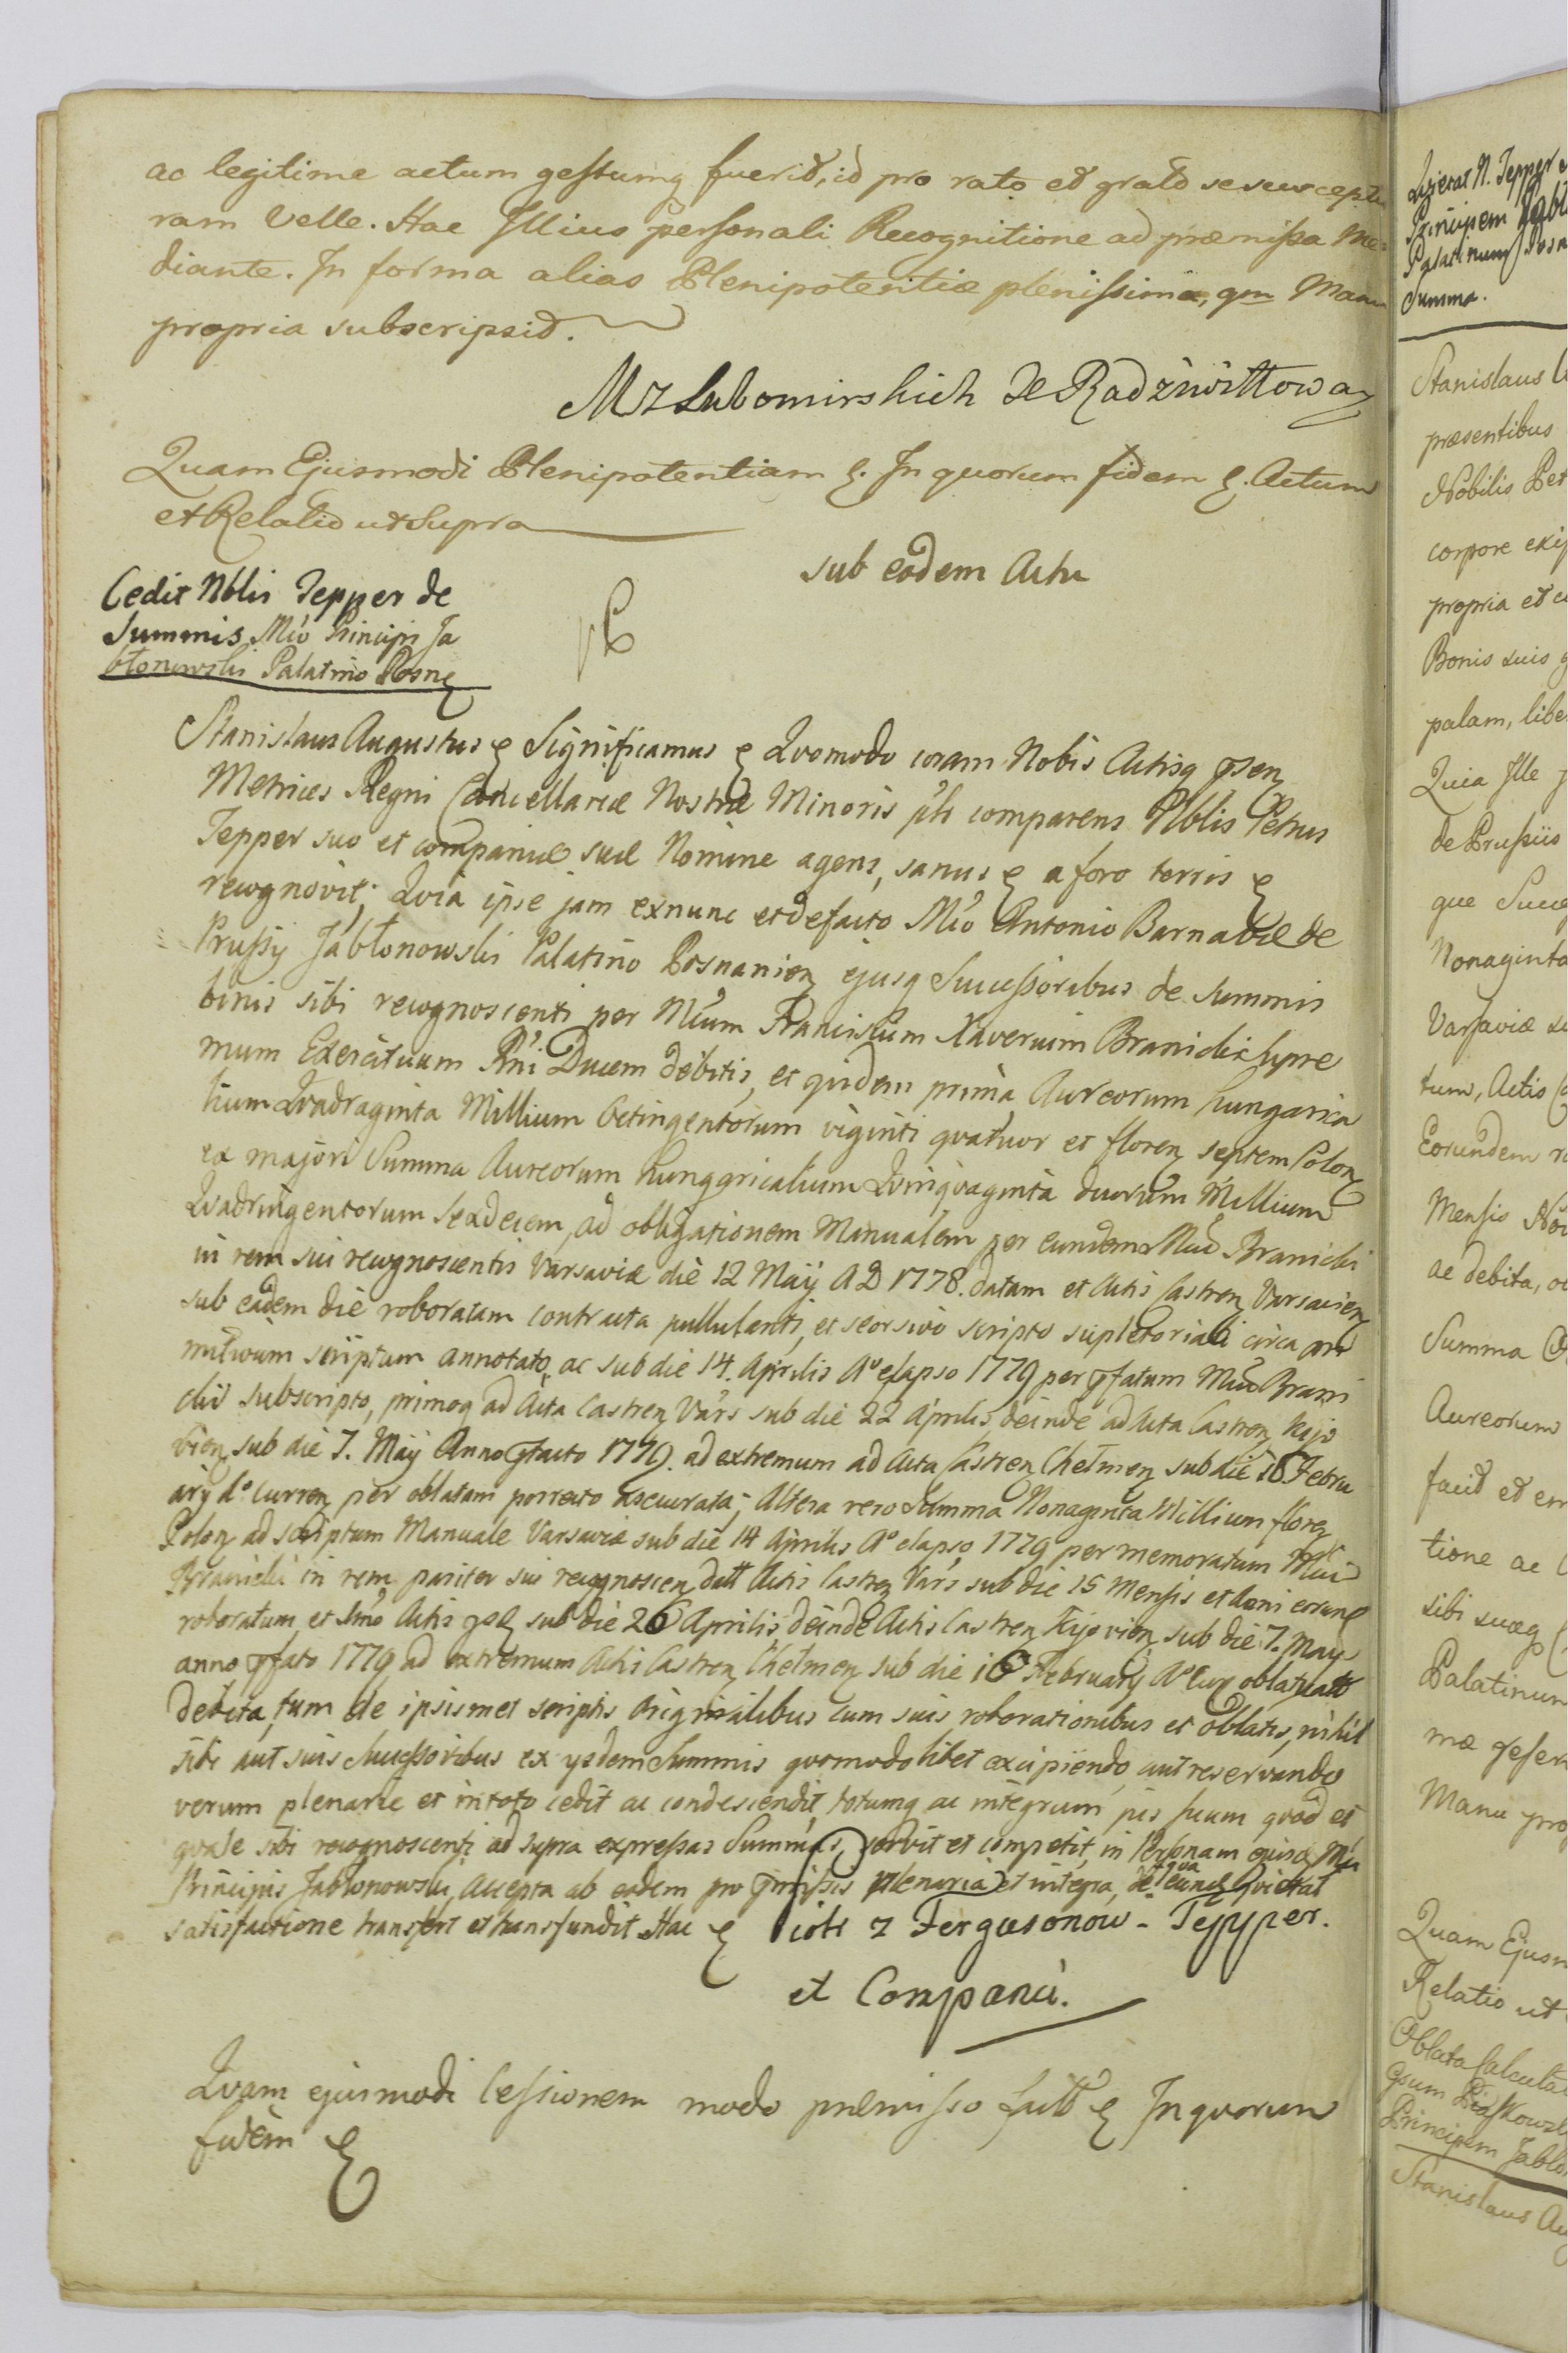 ac legitime actum gestumq fuerit, id pro rato et grato se suscep
ram Velle. Hac Illius personali Recognitione ad præmissa Me=
diante. In forma alias Plenipotentiæ plenissimæ, qm Manu
propria subscripsit.
M z Lubomirskich de Radziwiłłowa
Quam Ejusmodi Plenipotentiam &. In quorum fidem &. Actum
et Relatio ut Supra
sub eodem Actu
Cedit Nblis Tepper de
Summis Mío Principi Ja
błonowski Palatino Posn
Stanislaus Augustus & Significamus & Quomodo coram Nobis Actisq psen
Metrices Regni Cancellariæ Nostræ Minoris plr comparens Nblis Petrus
Tepper suo et companiæ suæ Nomine agens, sanus & a foro terris &
recognovit; Quia ipse jam exnunc et defacto Mío Antonio Barnabæ de
Prussÿ Jabłonowski Palatino Posnanien ejusq Successoribus de Summis
binis sibi recognoscenti per Mcum Franciscum Xaverium Branicki Supre
mum Exercituum Rni Ducem debitis, et quidem prima, Aureorum hungarica
lium Quadraginta Millium Octingentorum viginti quatuor et floren septem Polon
ex majori Summa Aureorum hungaricalium Quinquaginta duorum Millium
Quadringentorum Sexdecem, ad obligationem Manualem per eundem Mcu Branicki
in rem sui recognoscentis Varsaviæ die 12 Maÿ A D 1778. datam et Actis Castren Varsavien
sub eadem die roboratam contracta pullulanti, et seorsivo scripto supletoriali circa pri
mitivum scriptum annotato, ac sub die 14. Aprilis Ao elapso 1779 per pfatum Mcu Brani
cki subscripto, primoq ad Acta Castren Vars sub die 22 Aprilis, deinde ad Acta Castren Kijo
vien sub die 7. Maÿ Anno pfacto 1779. ad extremum ad Acta Castren Chełmen sub die 16 Febru
arÿ Ao Curren per oblatam porrecto assecurata; Altera vero Summa Nonaginta Millium floren
Polon ad scriptum Manuale Varsaviæ sub die 14 Aprilis Ao elapso 1779 per memoratum Mcu
Branicki in rem pariter sui recognoscen datt Actis Castren Vars sub die 15 Mensis et Anni eorund
roboratum et Imo Actis psen sub die 26 Aprilis deinde Actis Castren Kijovien sub die 7. May
anno pfato 1779 ad extremum Actis Castren Chełmen sub die 16 Februarÿ Ao Curr oblat
debita, tum de ipsismet scriptis Originalibus cum suis roborationibus et oblatis, nihil
sibi aut suis Successoribus ex ÿsdem Summis quomodolibet excipiendo, aut reservando
verum plenarie et in toto cedit ac condescendit, totumq ac integrum jus suum quod et
quale sibi recognoscenti ad supra expressas Summas servit et competit, in Personam ejusd Mci
Principis Jabłonowski, Accepta ab eodem pro pmissis plenaria et integra, de qua eund Quietat
satisfactione transfert et transfundit. Hac & Piotr z Fergusonow - Tepper.
et Companii.
Quam ejusmodi Cessionem modo præmisso fact & In quorum
fidem &
Quietat N. Tepper
Principem Jabł
Palatinum Posn
Summa.
Stanislaus
præsentibus
Nobilis Pet
corpore exi
propria et c
Bonis suis
palam, libe
Quia Ille
de Prussiis
que Succe
Nonaginta
Varsaviæ
tum, Actis
Eorundem
Mensis No
ac debita,
Summa
Aureorum
facit et
tione ac
sibi suæq
Palatinum
mæ
Manu pro
Quam Ejusm
Relatio ut
Oblata
Principem Jabło
Stanislaus Au